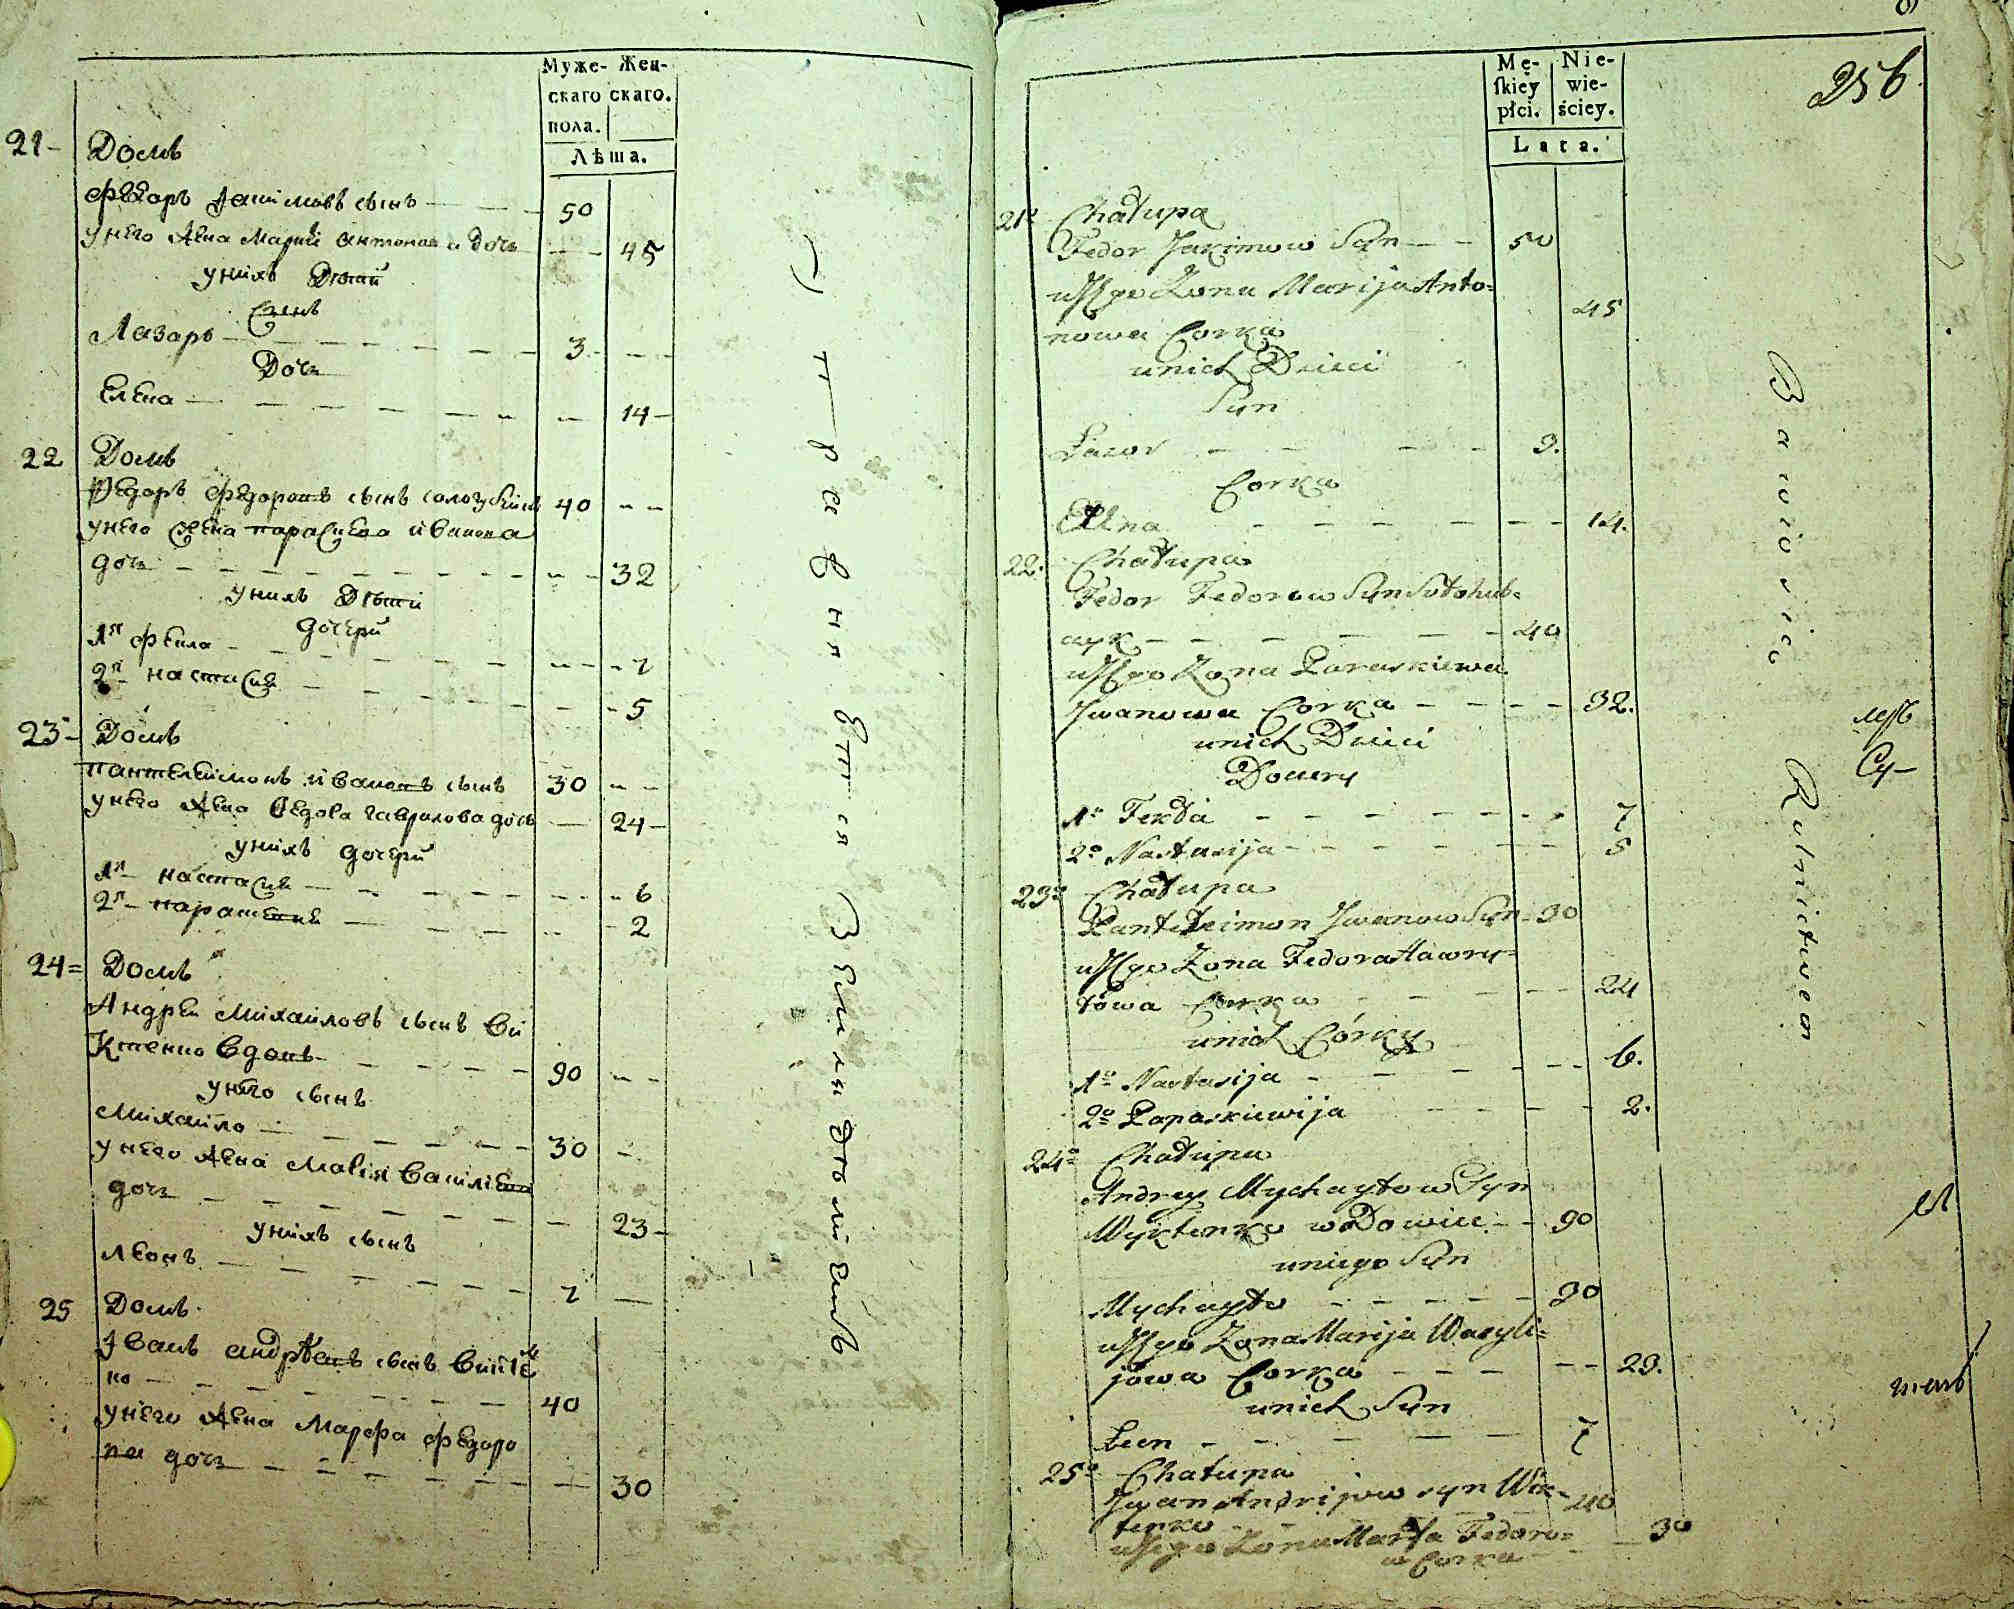 Муже- Жен-
скаго скаго.
пола.
Лѣта.
21 Домъ
Федоръ Якимовъ сынъ 50
У него жена Марий Антонова дочь 45
У нихъ Дѣти
Сынъ
Лазаръ 3
Дочь
Елена 14
22 Домъ
Федоръ Федоровъ сынъ 40
У него жена Параскева Иванова
дочь 32
У нихъ Дѣти
дочери
1я Фекла 7
2я Настасия 5
23 Домъ
Пантелеимонъ Ивановъ сынъ 30
У него жена Федора Гаврилова дочь 24
У нихъ дочери
1я Настасия 6
2я 2
24 Домъ
Андрей Михайловъ сынъ Ви
ктенко вдовъ 90
У него сынъ
Михайло 30
У него жена Мария Василева
дочь 23
У нихъ сынъ
Леонъ 7
25 Домъ
Иванъ Андрѣевъ сынъ
но 40
У него жена Марфа Федоро
ва дочь 30
упражняется Земледѣлиемъ
256
Mę- Nie-
skiey wie-
płci. ściey.
Lata.
21° Chałupa
Fedor Jakimow Syn 50
u Jego Zona Marija Anto=
nowa Corka 45
u nich Dzieci
Syn
Łazor 3.
Corka
Elena 14.
22. Chałupa
Fedor Fedorow Syn Sołohub=
czyk 40
u Jego Zona Paraskiewa
Jwanowa Corka 32.
u nich Dzieci
Doczery
1° Tekla 7
2° Nastasija 5
23° Chałupa
Panteleimon Jwanow Syn 30
u Jego Zona Fedora Hawry=
łowa Corka 24
u nich Córky
1° Nastasija 6.
2° Paraskiewija 2.
24° Chałupa
Andrey Mychayłow Syn
Wyktenko wDowiec 90
u niego Syn
Mychayło 30
u Jego Zona Marija Wasyli=
jowa Corka 23.
u nich Syn
Leon 7
25° Chałupa
Jwan Andrijow syn Wik=
tenko 40
u Jego Zona Marta Fedoro=
w Corka 30
Bawio sie Rolnictwem